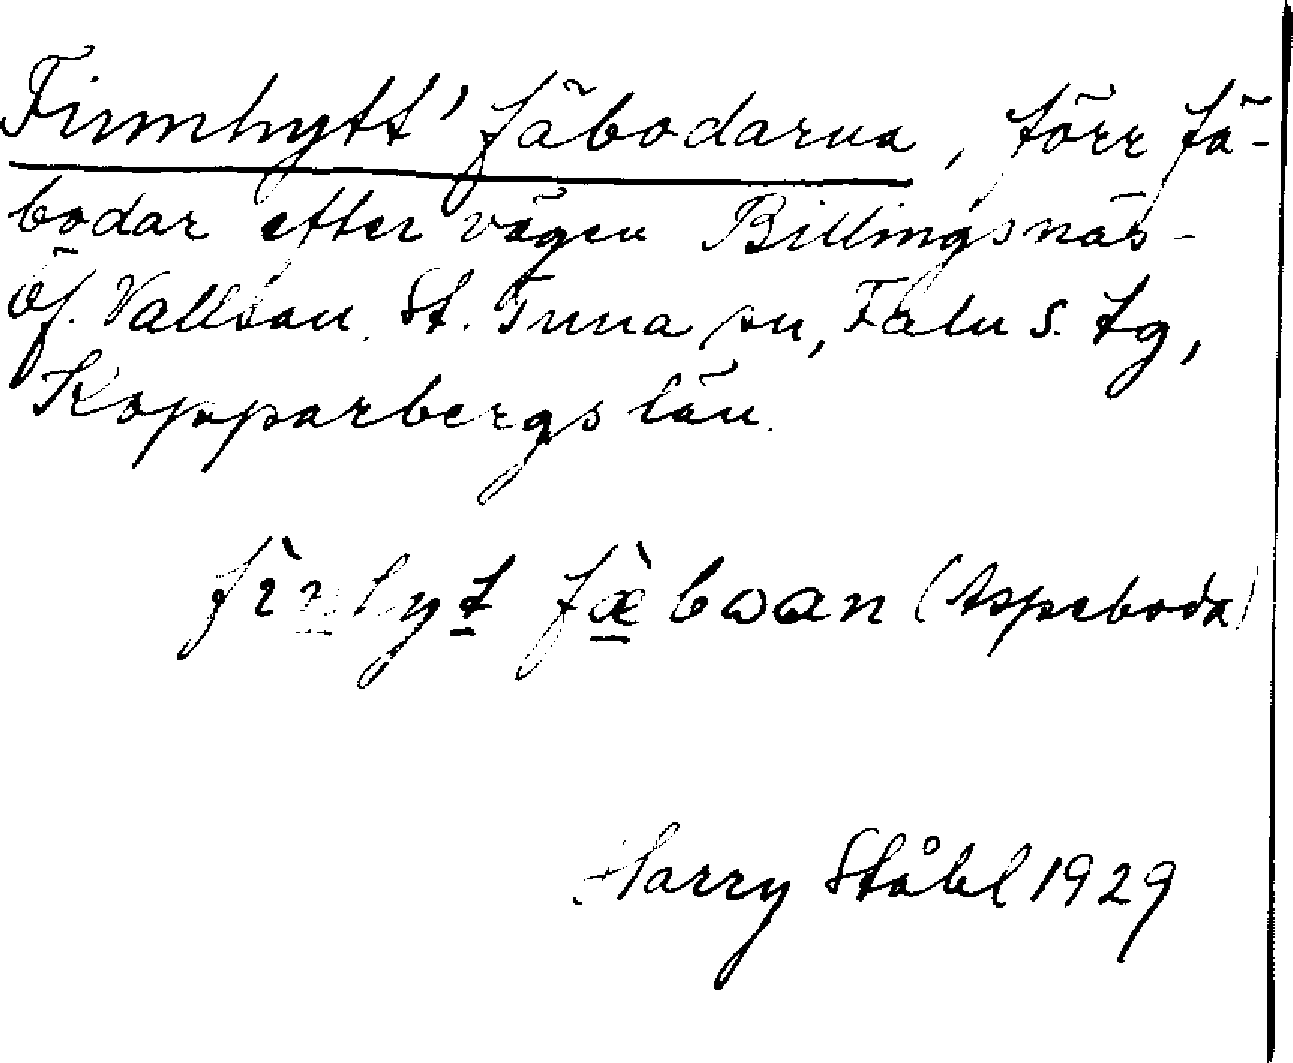 Finnhytt' fäbodarna, förr fä-
bodar efter vägen Billingsnäs-
Öf. Vallsån. St. Tuna sn, Falu s. tg,
Kopparbergs län.
(Aspeboda)
Harry Ståhl 1929